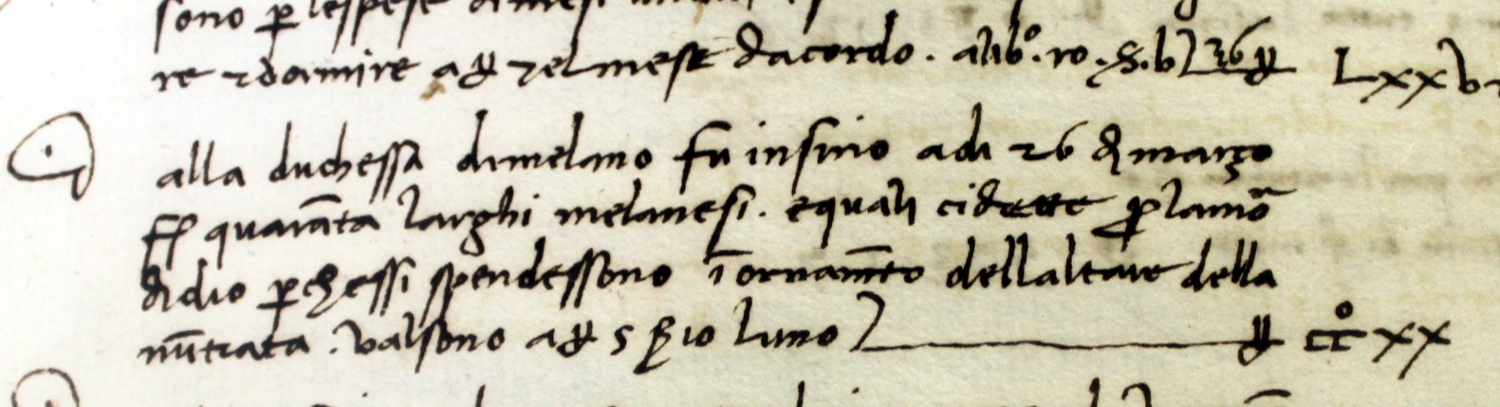 sono p̱ lespese
re et dormire a lb el mese dacordo . alib.° ro . s . b 26 lb LXXV
alla duchessa dimelano fu insino adi 26 di março
fl quarāta larghi melanesi . equali cidette p lamō
didio p̱chessi spendessono ī ornam̄to dellaltare della
nūtiata . valsono a lb 5 s 10 luno lb ccº xx